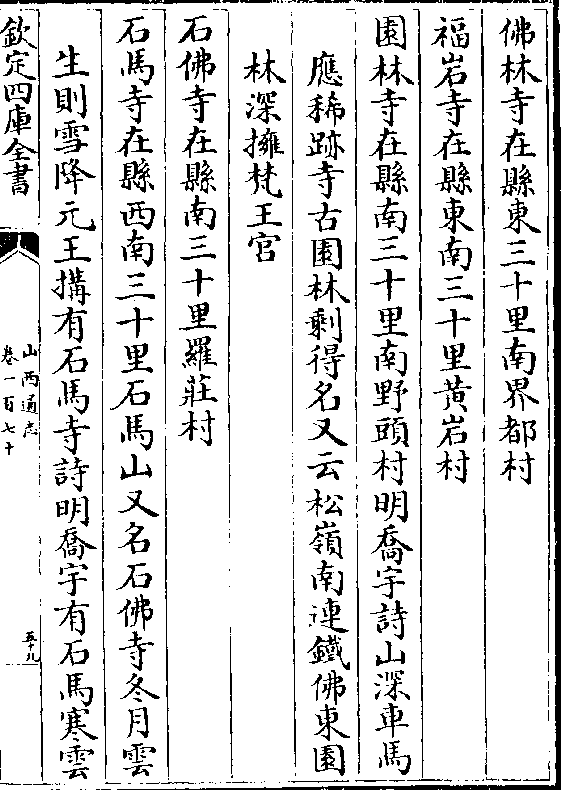 佛林寺在縣東三十里南界都村
福岩寺在縣東南三十里黃岩村
園林寺在縣南三十里南野頭村明喬宇詩山深車馬
應稀跡寺古園林剩得名又云松嶺南連鐵佛東園
林深擁梵王宮
石佛寺在縣南三十里羅莊村
石馬寺在縣西南三十里石馬山又名石佛寺冬月雲
生則雪降元王搆有石馬寺詩明喬宇有石馬寒雲
欽定四庫全書
山西通志
卷一百七十
五十九